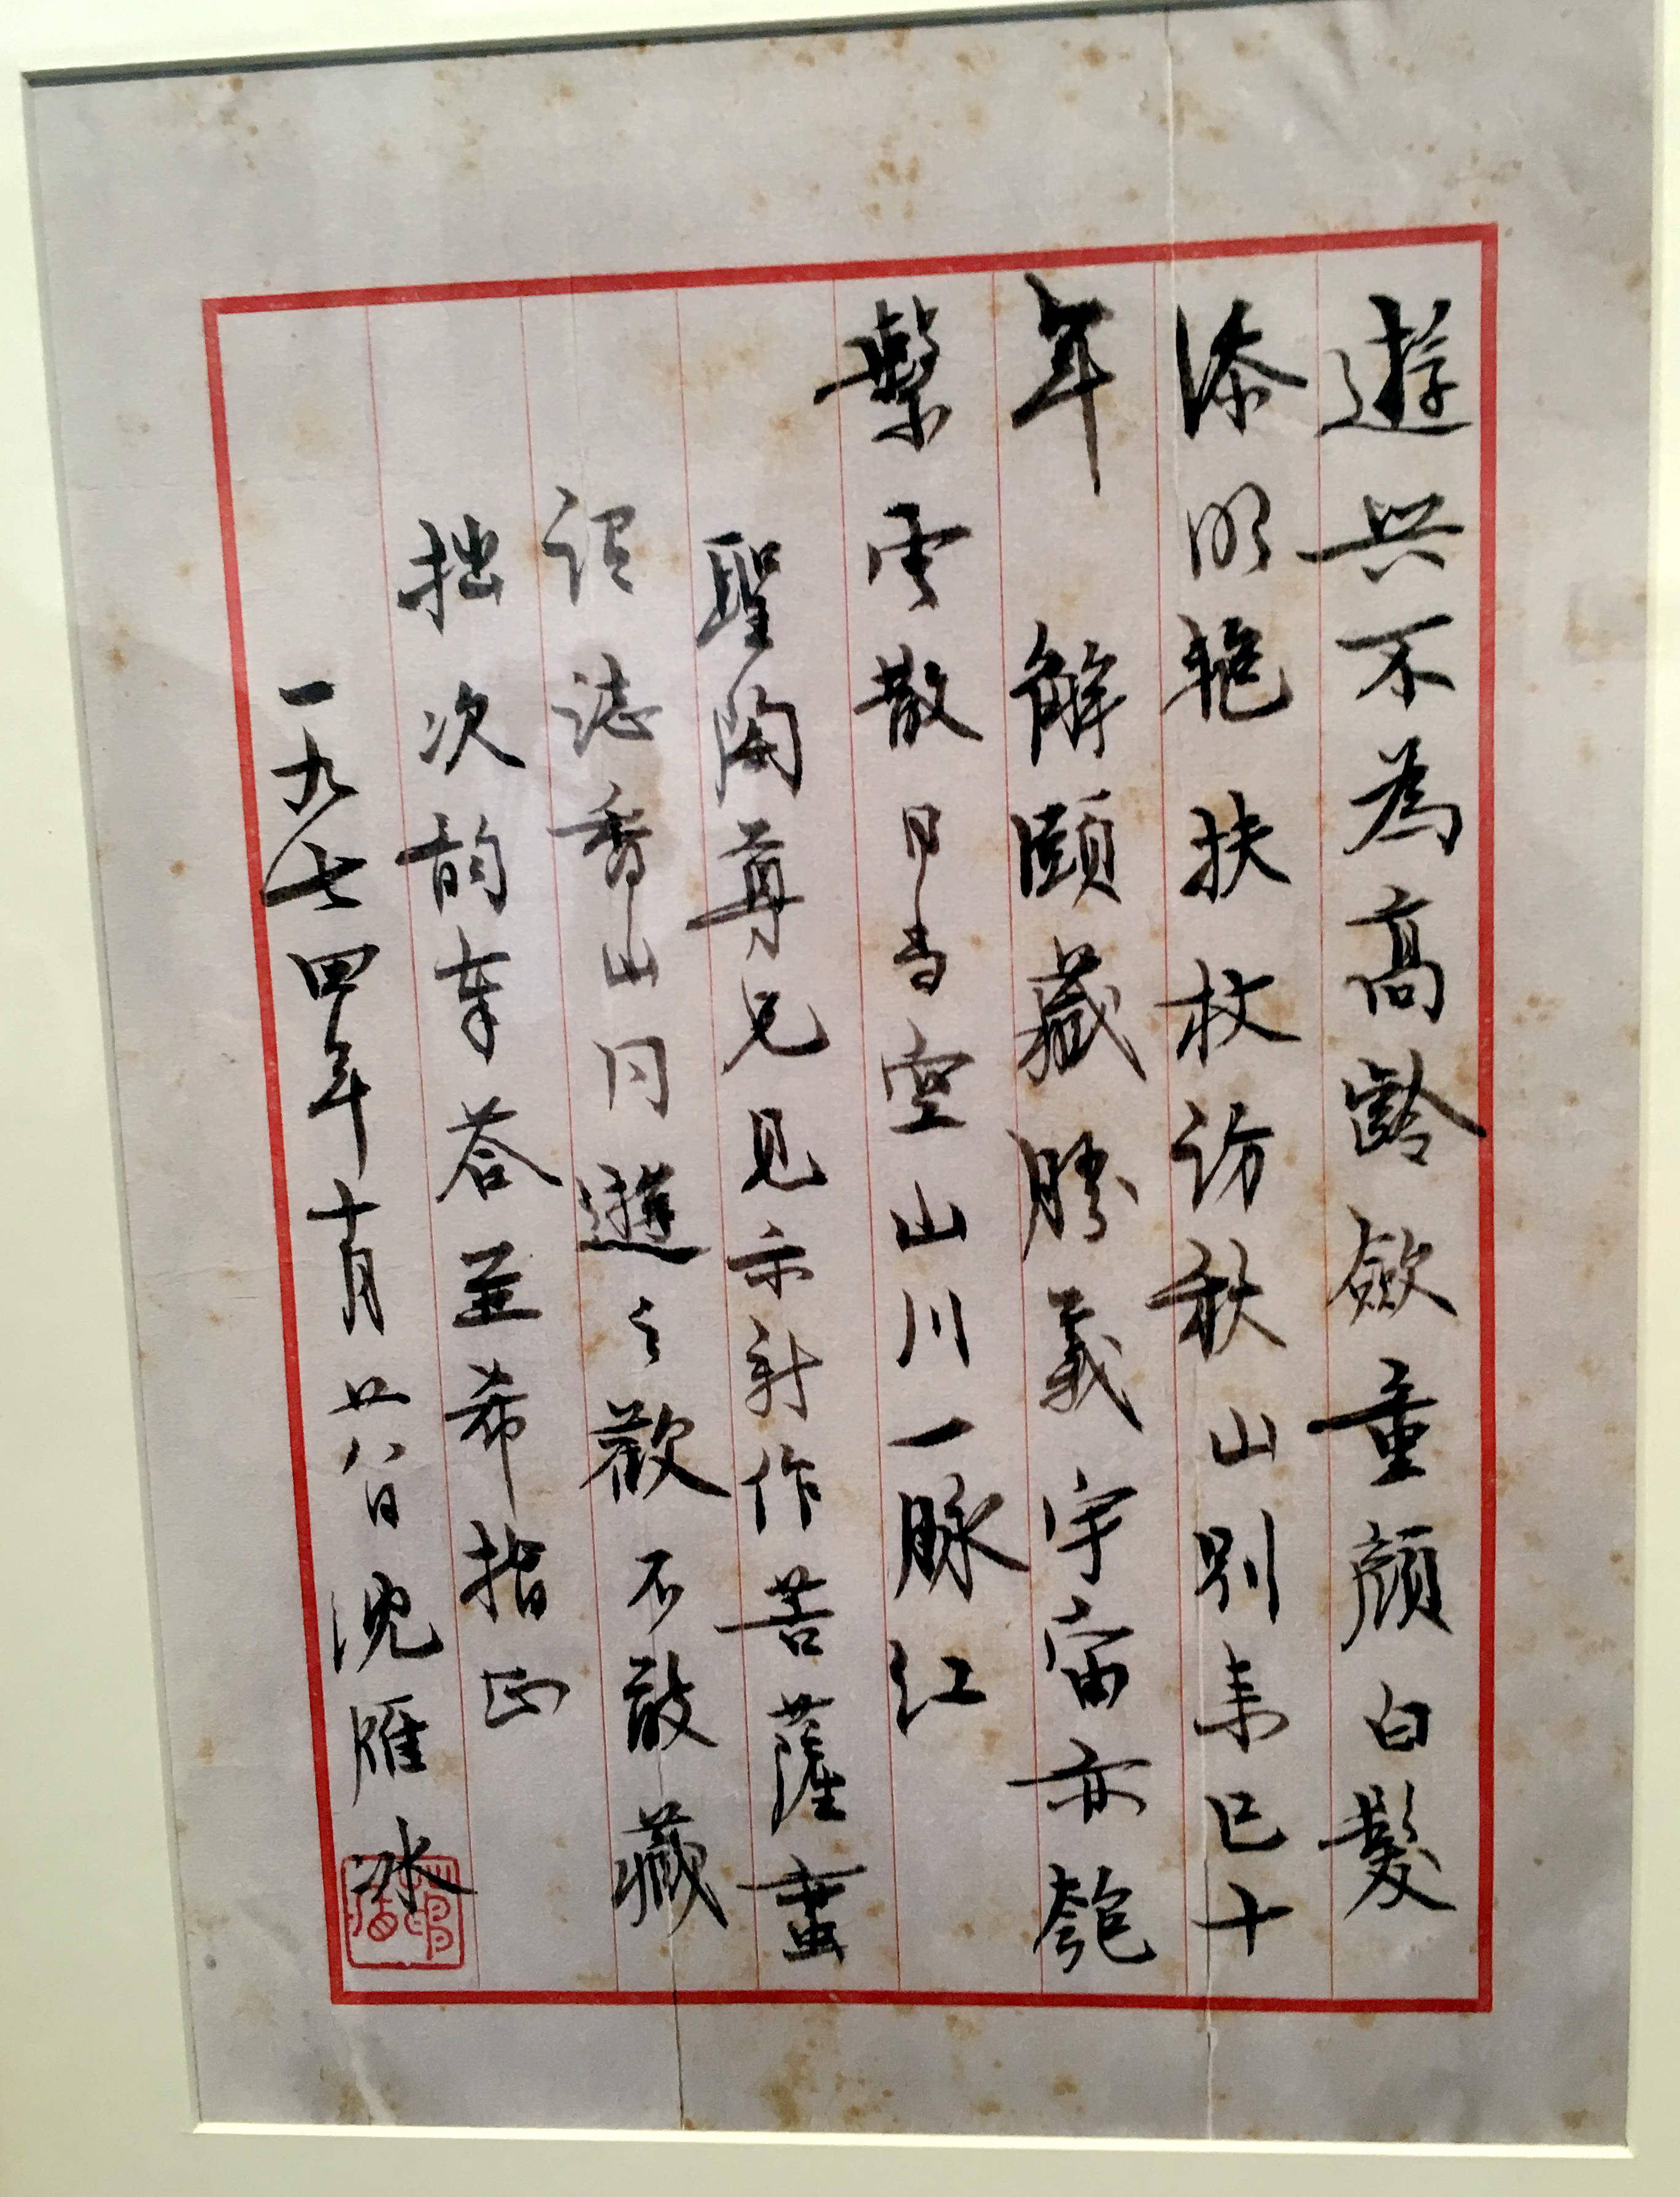 遊興不為高齡斂童顏白髮
添明艳扶杖訪秋山别来已十
年　解頤藏勝義宇宙亦匏
繫雲散日當空山川一脉红
聖陶尊兄見示新作菩薩蛮
詞誌香山同遊之歡不敢藏
拙次韵奉荅並希指正
一九七四年十月廿八日沈雁冰